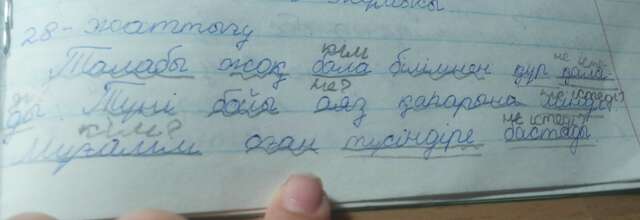 28-жаттығу
кім не істе
Талабы жоқ бала білімнен құр қала-
ды не? не істеді?
ды Түні бойы аяз қаһарына мінді
кім? не істеді?
Мұғалім оған түсіндіре бастады